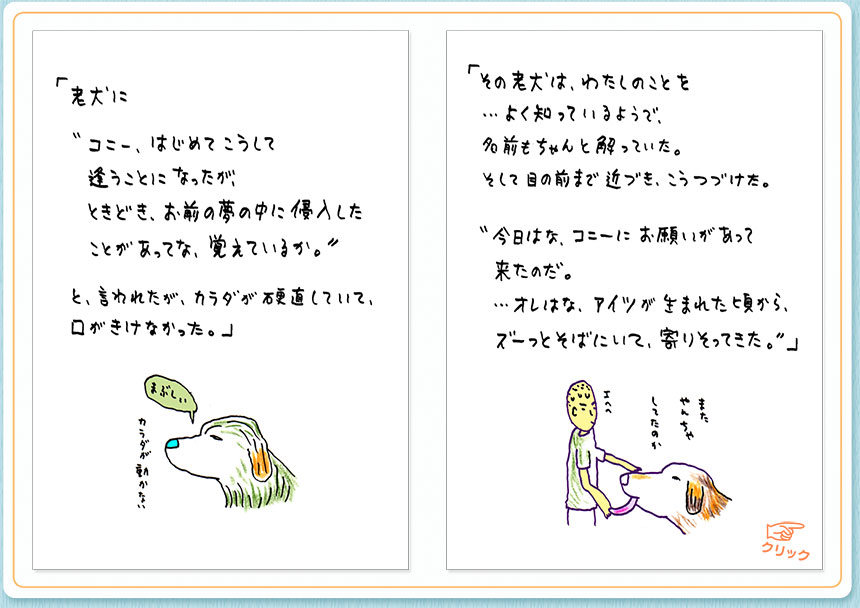 「老犬に
“コニー、はじめてこうして
逢うことになったが、
ときどき、お前の夢の中に侵入した
ことがあってな、覚えているか。”
と、言われたが、カラダが硬直していて、
口がきけなかった。」
まぶしい
カラダが動かない
「その老犬は、わたしのことを
…よく知っているようで、
名前もちゃんと解っていた。
そして目の前まで近づき、こうつづけた。
“今日はな、コニーにお願いがあって
来たのだ。
…オレはな、アイツが生まれた頃から、
ズーっとそばにいて、寄りそってきた。”」
エヘヘ
また
やんちゃ
してたのか
クリック